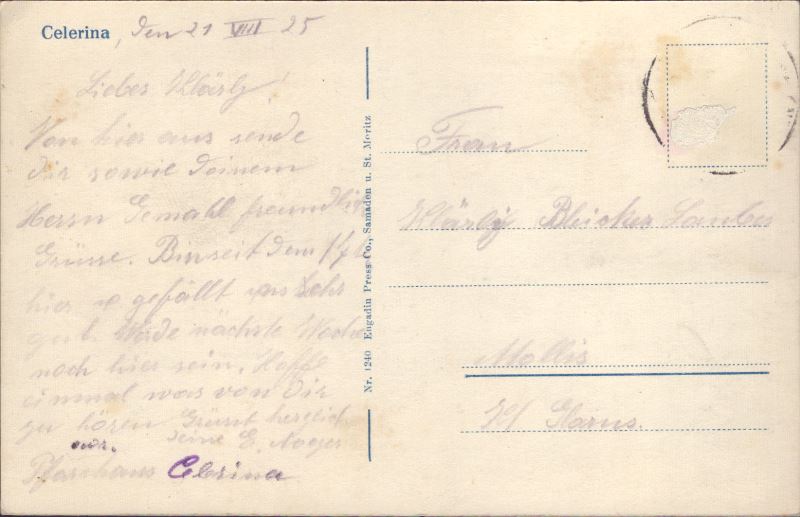 Celerina, den 21 VIII 25
Liebes Klärly!
Von hier aus sende
dir sowie deinem
Herrn Gemahl freundlich
Grüsse. Bin seit dem
hier u gefällt uns sehr
gut. Werde nächste Woche
noch hier sein. Hoffe
einmal was von dir
zu hören Grüsst herzlich
deine E.
adr.
Pfarrhaus Celerina
Nr. 1240 Engadin Press Co., Samaden u. St. Moritz
Frau
Klärly Blicker
Mollis
Kt Glarus.